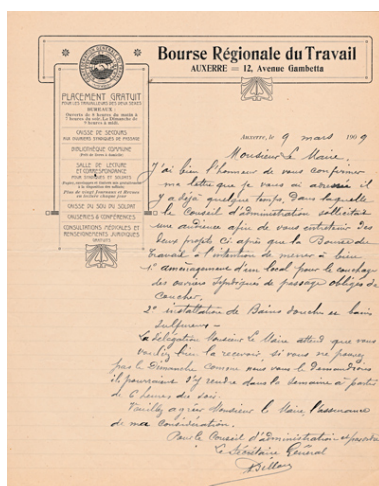 Bourse Régionale du Travail
AUXERRE = 12, Avenue Gambetta
PLACEMENT GRATUIT
POUR LES TRAVAILLEURS DES DEUX SEXES
BUREAUX
CAISSE DE SECOURS
AUX OUVRIERS SYNDIQUÉS DE PASSAGE
BIBLIOTHÈQUE COMMUNE
SALLE DE LECTURE
ET CORRESPONDANCE
POUR SYNDIQUÉS ET SOLDATS
CAISSE DU SOU DU SOLDAT
CAUSERIES & CONFÉRENCES
CONSULTATIONS MÉDICALES ET
RENSEIGNEMENTS JURIDIQUES
GRATUITS
Auxerre, le 9 mars 1909
Monsieur Le Maire.
J'ai bien l'honneur de vous confirmer
ma lettre que je vous ai adressé il
y a déjà quelque temps. Dans laquelle
le Conseil d'administration sollicitait
une audience afin de vous entretenir des
deux projets ci après que la Bourse du
Travail a l'intention de mener à bien
1° aménagement d'un local pour le couchage
des ouvriers syndiqués de passage obligés de
coucher.
2° installation de Bains douche et bains
sulfureux -
La délégation Monsieur Le Maire attend que vous
vouliez bien la recevoir, si vous ne pouvez
pas le Dimanche comme nous vous le demandions
ils pourraient s'y rendre dans la semaine à partir
de 6 heures du soir.
Veuillez agréer Monsieur le Maire, l'assurance
de ma considération.
Pour le Conseil d'administration et par ordre
Le Secrétaire Général